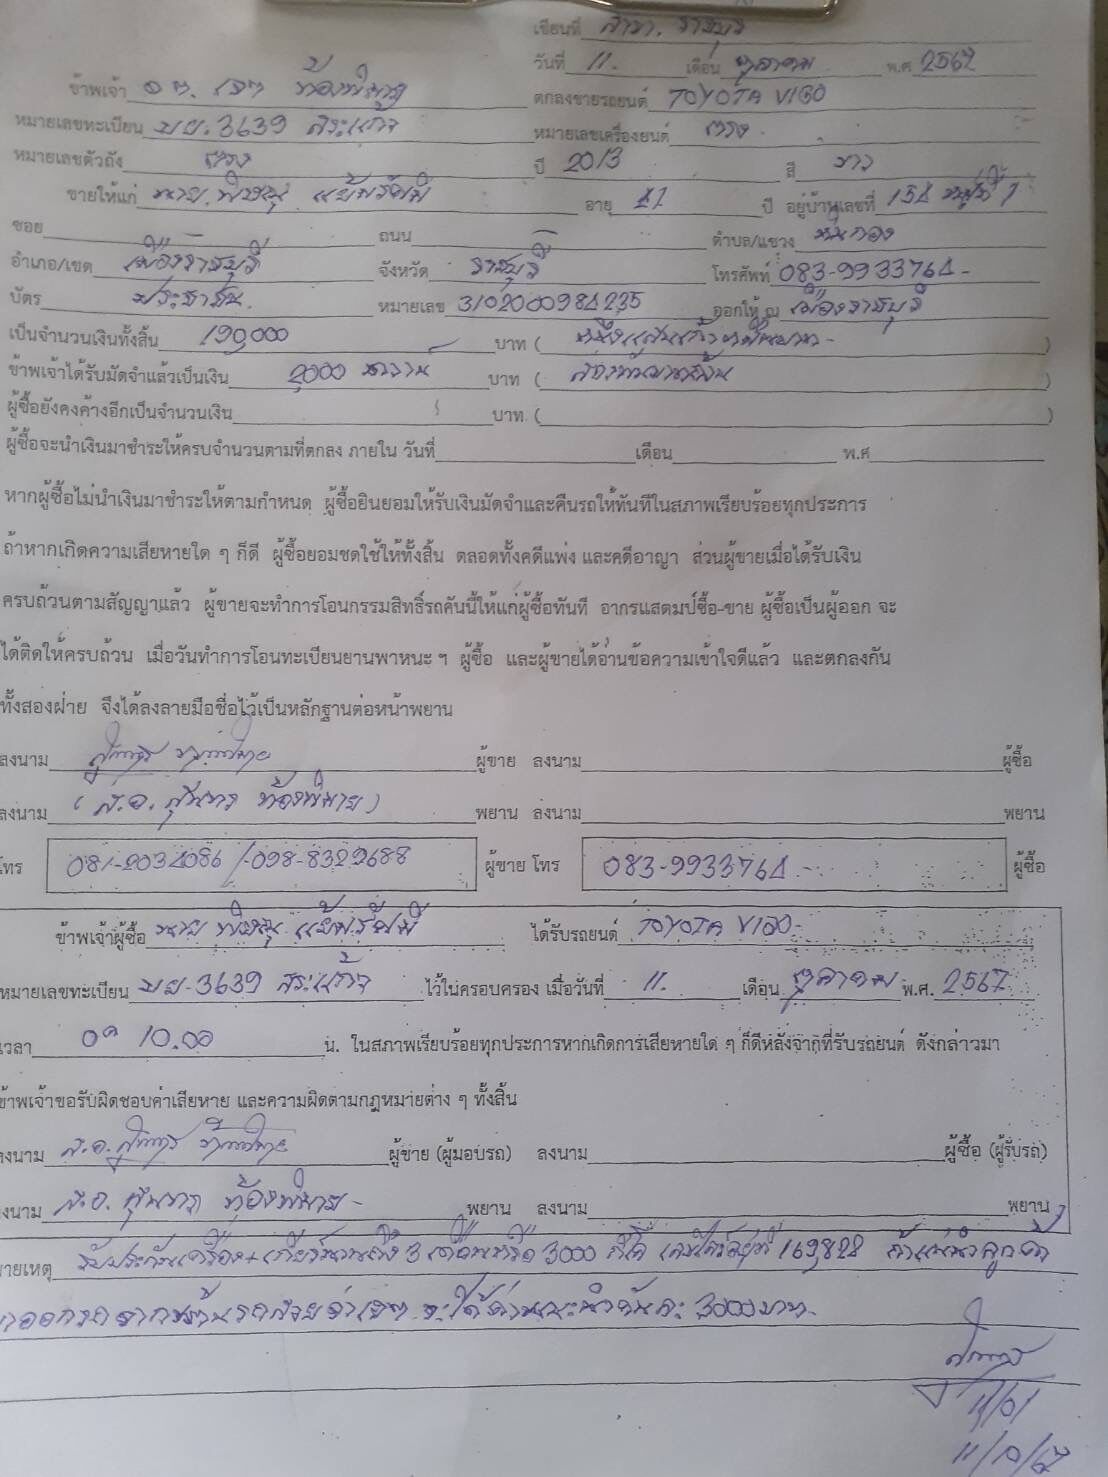 เขียนที่ สาขา. ราชบุรี
วันที่ 11. เดือน ตุลาคม พ.ศ 2567
ข้าพเจ้า ตกลงขายรถยนต์ TOYOTA VIGO
หมายเลขทะเบียน บย.3639 สระแก้ว หมายเลขเครื่องยนต์ ตรง
หมายเลขตัวถัง ตรง ปี 2013 สี ขาว
ขายให้แก่ นาย อายุ 41 ปี อยู่บ้านเลขที่ 154 หมู่ที่ 1
ซอย - ถนน - ตำบล/แขวง หินกอง
อำเภอ/เขต เมืองราชบุรี จังหวัด ราชบุรี โทรศัพท์ 083-9933764-
บัตร ประชาชน. หมายเลข 3102000984235 ออกให้ ณ เมืองราชบุรี
เป็นจำนวนเงินทั้งสิ้น 190,000 บาท ( หนึ่งแสนเก้าหมื่นบาท- )
ข้าพเจ้าได้รับมัดจำแล้วเป็นเงิน 2,000 บาท ( สองพันบาทถ้วน )
ผู้ซื้อยังคงค้างอีกเป็นจำนวนเงิน บาท ( )
ผู้ซื้อจะนำเงินมาชำระให้ครบจำนวนตามที่ตกลง ภายใน วันที่ เดือน พ.ศ
หากผู้ซื้อไม่นำเงินมาชำระให้ตามกำหนด ผู้ซื้อยินยอมให้รับเงินมัดจำและคืนรถให้ทันทีในสภาพเรียบร้อยทุกประการ
ถ้าหากเกิดความเสียหายใด ๆ ก็ดี ผู้ซื้อยอมชดใช้ให้ทั้งสิ้น ตลอดทั้งคดีแพ่ง และคดีอาญา ส่วนผู้ขายเมื่อได้รับเงิน
ครบถ้วนตามสัญญาแล้ว ผู้ขายจะทำการโอนกรรมสิทธิ์รถคันนี้ให้แก่ผู้ซื้อทันที อากรแสตมป์ซื้อ-ขาย ผู้ซื้อเป็นผู้ออก จะ
ได้ติดให้ครบถ้วน เมื่อวันทำการโอนทะเบียนยานพาหนะ ฯ ผู้ซื้อ และผู้ขายได้อ่านข้อความเข้าใจดีแล้ว และตกลงกัน
ทั้งสองฝ่าย จึงได้ลงลายมือชื่อไว้เป็นหลักฐานต่อหน้าพยาน
ลงนาม ผู้ขาย ลงนาม ผู้ซื้อ
ลงนาม พยาน ลงนาม พยาน
โทร 081-2034086 /-098-8322688 ผู้ขาย โทร 083-9933764 - ผู้ซื้อ
ข้าพเจ้าผู้ซื้อ นาย ได้รับรถยนต์ TOYOTA VIGO-
หมายเลขทะเบียน บย-3639 สระแก้ว ไว้ในครอบครอง เมื่อวันที่ 11. เดือน ตุลาคม พ.ศ. 2567
เวลา 10.00 น. ในสภาพเรียบร้อยทุกประการหากเกิดการเสียหายใด ๆ ก็ดีหลังจากที่รับรถยนต์ ดังกล่าวมา
ข้าพเจ้าขอรับผิดชอบค่าเสียหาย และความผิดตามกฎหมายต่าง ๆ ทั้งสิ้น
ลงนาม ผู้ขาย (ผู้มอบรถ) ลงนาม ผู้ซื้อ (ผู้รับรถ)
ลงนาม พยาน ลงนาม พยาน
หมายเหตุ รับประกันเครื่อง+เกียร์ 3 เดือนหรือ 3000 กิโล 169828 ถ้าแนะนำลูกค้า
3000 บาท-
11/10/67